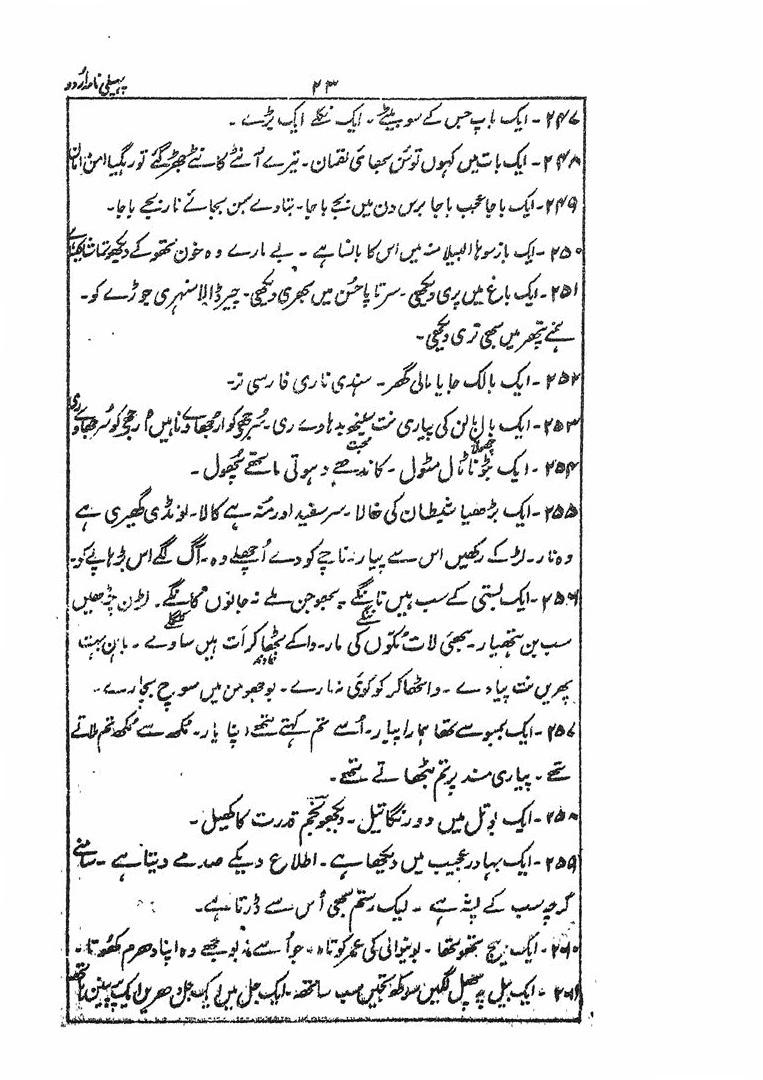 ۲۳
پہیلی نامہ اُردو
۲۴۷ - ایک باپ جس کے سو بیٹے - ایک نکلے ایک پڑے -
۲۴۸ - ایک بات میں کہوں تو سُن سبھائی نقمان - تیرے آنٹے کانٹے جھڑ گئے تو رہگیا امن امان
۲۴۹ - ایک باجا عجب باجا برس دن میں نبجے باجا - بتا دے سبھن بجائے نار نبجے باجا -
۲۵۰ - ایک باز سوہا البیلا منہ میں اس کا بانسا ہے - بے مارے وہ خون تھوکے دیکھو تماشا
۲۵۱ - ایک باغ میں پری دیکھی - سرتا پا حُسن میں بھری دیکھی - چیر ڈالا سنہری جوڑے کو -
ہمنے پتھر میں بھی تری دیکھی -
۲۵۲ - ایک بالک جایا مالی گھر - ہندی ناری فارسی نر -
۲۵۳ - ایک بال بالن کی پیاری نت
۲۵۴ - ایک ٹال مٹول - کاندھے دھوتی ماتھے پھول -
۲۵۵ - ایک بڑھیا شیطان کی خالا - سر سفید اور منہ ہے کالا - لونڈی گھیری ہے
وہ نار - لڑکے رکھیں اس سے پیار - ناچے کودے اُچھلے وہ - آگ لگے اس بڑھاپے کو -
۲۵۶ - ایک بستی کے سب ہیں نانگے - بھوجن ملے نہ جانوں مانگے - لڑن چڑھیں
سب بن ہتھیار - بھئی لات مُکّوں کی مار - وا کے ٹھاکر اَت ہیں ساوے - باہن بہت
پھریں نت پیادے - وا ٹھاکر کو کوئی نہ مارے - بوجھو من میں سوچ بچارے -
۲۵۷ - ایک بمبو سے تھا ہمارا پیار - اُسے ہم کہتے تھے اپنا یار - مُکھ سے مُکھ ہم ملاتے
تھے - پیاری مسند پر ہم بٹھاتے تھے -
۲۵۸ - ایک بوتل میں دو رنگا تیل - دیکھو قدرت کا کھیل -
۲۵۹ - ایک بہادر عجیب میں دیکھا ہے - اطلاع دیکے صدمے دیتا ہے - سامنے
گرچہ سب کے پشہ ہے - لیک رستم بھی اُس سے ڈرتا ہے -
۲۶۰ - ایک بیج تھو تھا - بوننوالی کی عمر کوتاہ - جو اُسے نہ بوجھے وہ اپنا دھرم کھوتا -
۲۶۱ - ایک بیل پہ پھل لگیں سوکھ تجیں سب ساتھ - ایک جل میں ایک جل دھریں ایک پہنیں ہاتھ